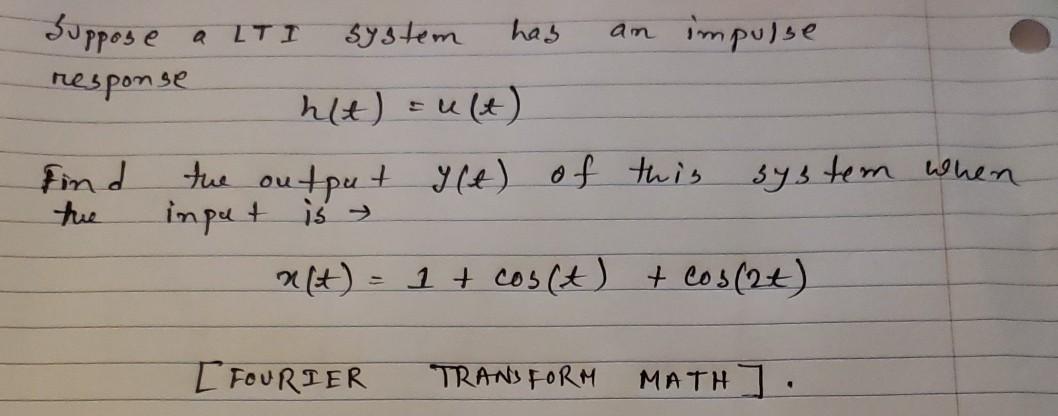 Suppose a LTI system has an impulse
response
h(t) = u(t)
Find the output y(t) of this system when
the input is →
x(t) = 1 + cos(t) + cos(2t)
[FOURIER TRANSFORM MATH].